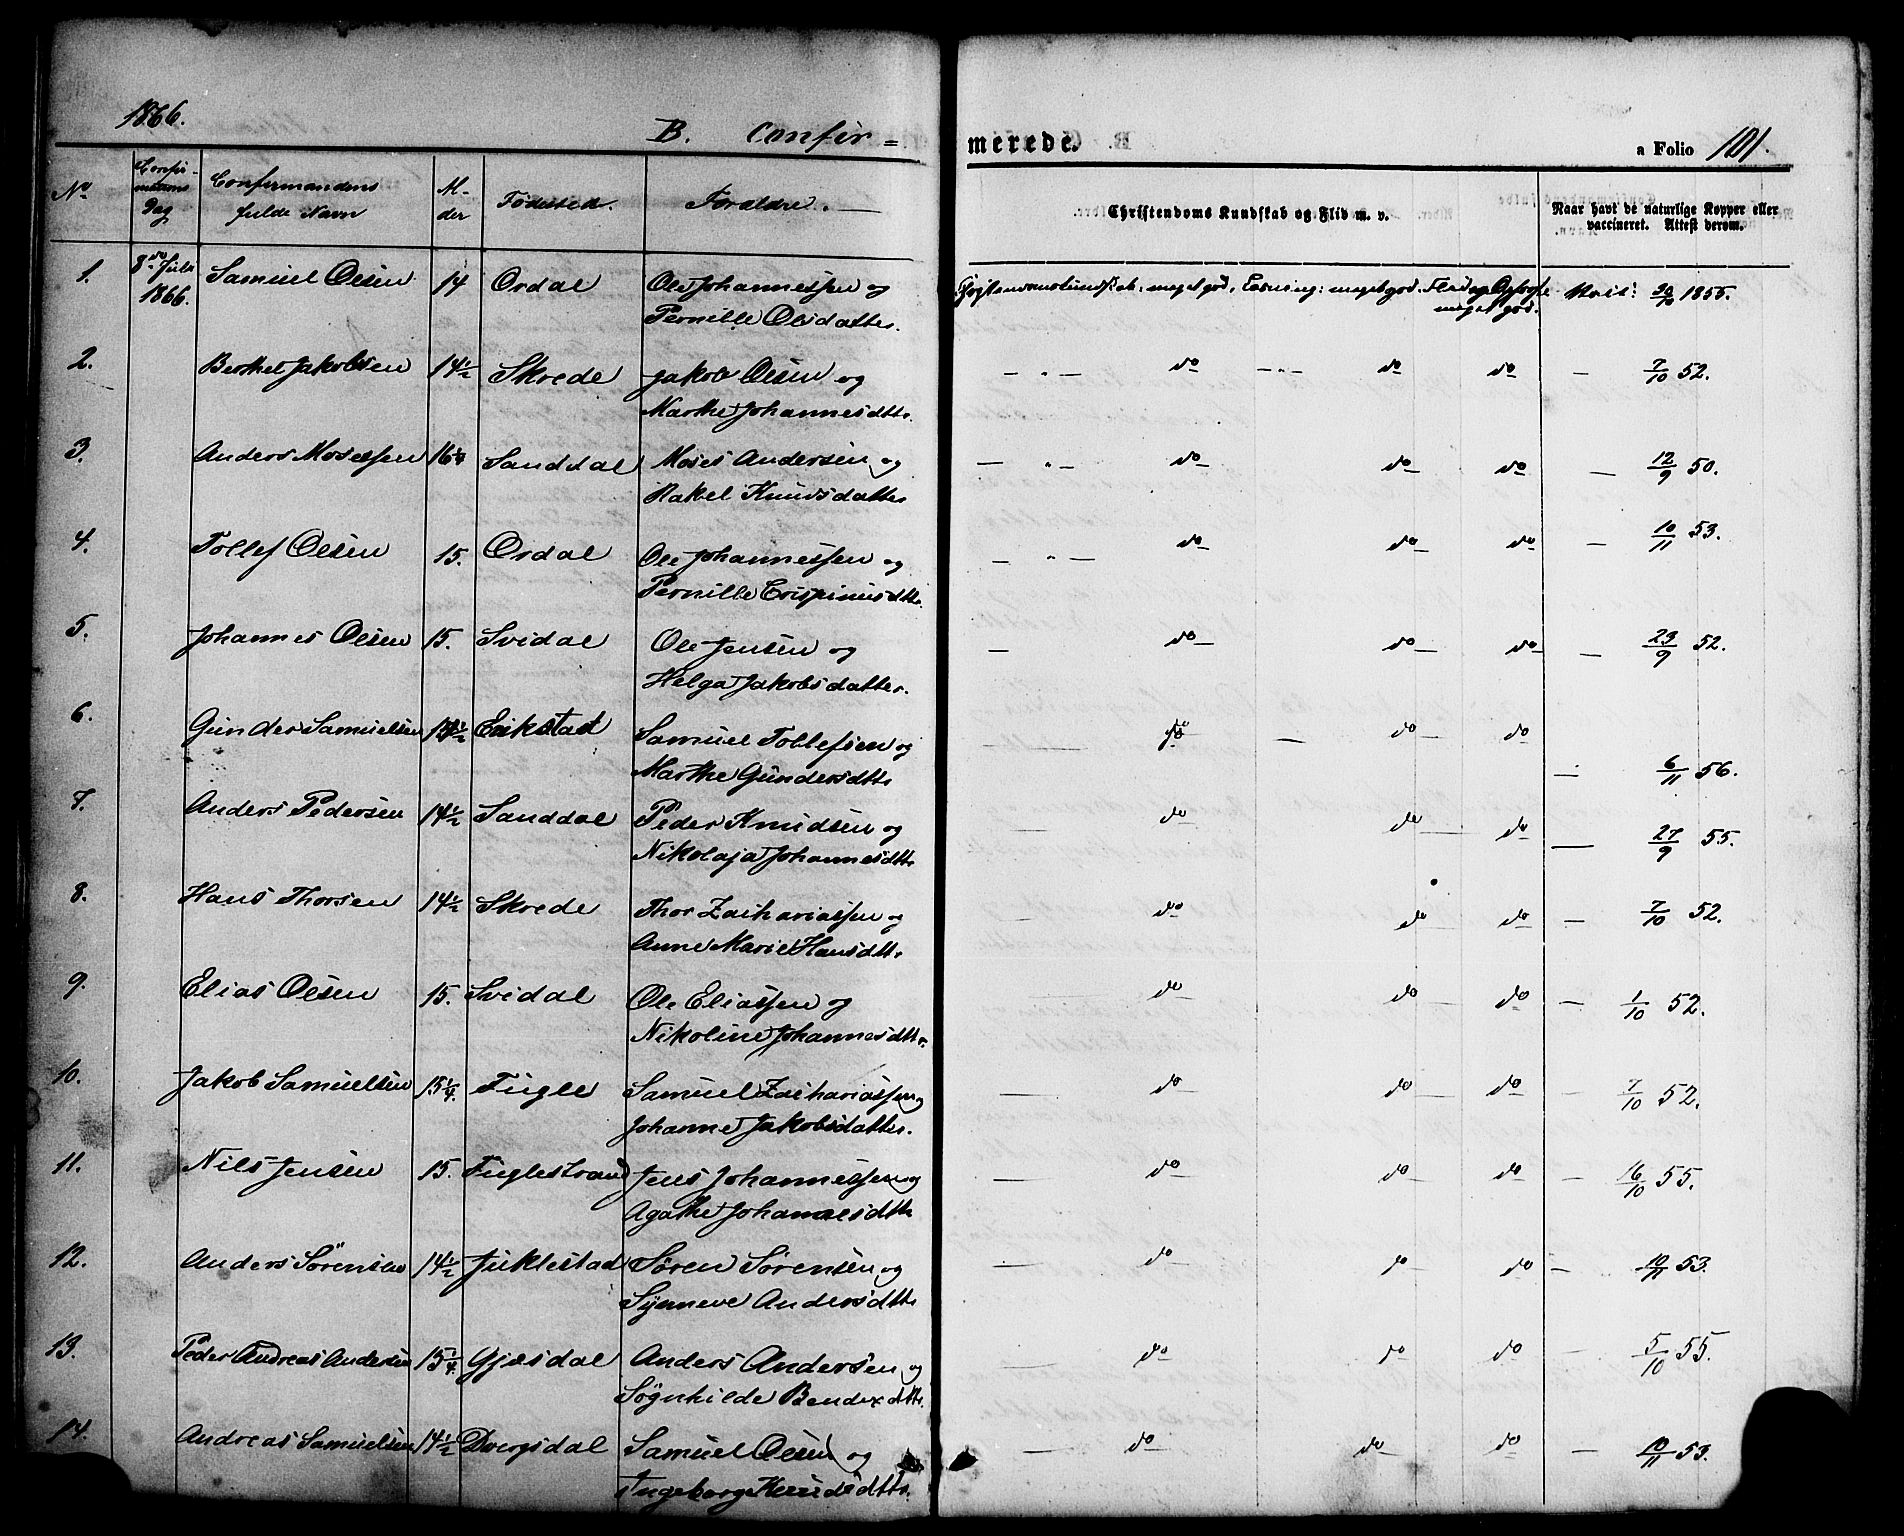 1866.
B. Confir=
merede.
a Folio 101.
No
Confir-
mations
Dag
Confirmandens
fulde Navn
Al-
der
Fødested.
Forældre.
Christendoms Kundskab og Flid m. v.
Naar havt de naturlige Kopper eller
vaccineret. Attest derom.
1. 8de Juli Samuel Olsen 14 Ordal Ole Johannessen og Christendomskundskab: meget god, Læsning: meget god. Flid og Opførsel Vacc: 20/10 1855.
1866. Pernille Olsdatter. meget god.
2. Berthel Jakobsen 14 1/2 Skrede Jakob Olsen og — " — do — " — do do — 7/10 52.
Marthe Johannesdttr
3. Anders Mosessen 16 Sanddal Moses Andersen og — " — do do do — 12/9 50.
Rakel Knudsdatter
4. Tollef Olsen 15. Ordal Ole Johannessen og — " — do do do — 10/11 53.
Pernille Crispinusdttr
5. Johannes Olsen 15. Svidal Ole Jensen og — do do do — 23/9 52.
Helga Jakobsdatter.
6. Gunder Samuelsen Eikstad Samuel Tollefsen og — do — do do
Marthe Gundersdttr — 6/11 56.
7. Anders Pedersen 14 1/2 Sanddal Peder Knudsen og — do do do — 27/9 55.
Nikolaja Johannesdttr
8. Hans Thorsen 14 1/2 Skrede Thor Zachariassen og — do do do — 7/10 52.
Anne Marie Hansdttr
9. Elias Olsen 15. Svidal Ole Eliassen og do do do — 1/10 52.
Nikoline Johannesdttr.
10. Jakob Samuelsen 15 1/4. Fugle Samuel Zachariassen og — do do do — 7/10 52.
Johanne Jakobsdatter.
11. Nils Jensen 15. Fuglestrand Jens Johannessen og — do do do — 16/10 55.
Agathe Johannesdttr
12. Anders Sørensen 14 1/2 Juklestad Søren Sørensen og — do do do — 10/11 53.
Synneve Andersdttr
13. Peder Andreas Andersen 15 1/4. Gjesdal Anders Andersen og — do do do — 5/10 55.
Søgnhilde Bendixdttr.
14. Andreas Samuelsen 14 1/2 Dvergsdal Samuel Olsen og — do do do — 10/11 53.
Ingeborg Knudsdttr.